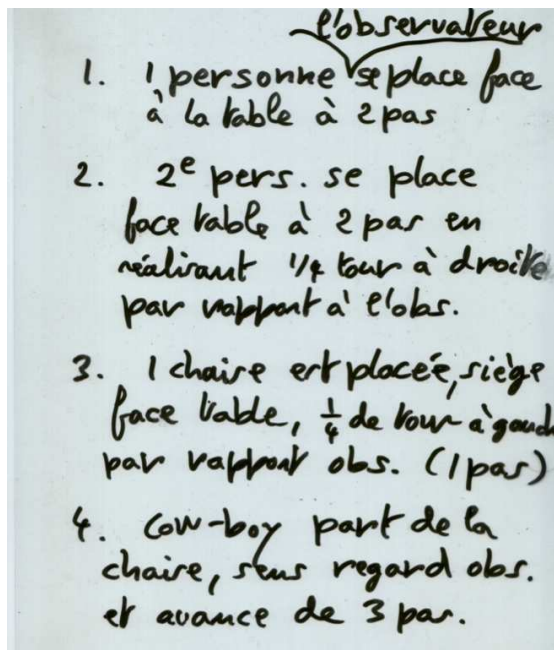 l'observateur
1. 1 personne se place face
à la table à 2 pas
2. 2e pers. se place
face table à 2 pas en
réalisant 1/4 tour à droite
par rapport à l'obs.
3. 1 chaise est placée, siège
face table, 1/4 de tour à gauch
par rapport obs. (1 pas)
4. Cow-boy part de la
chaise, sens regard obs.
et avance de 3 pas.